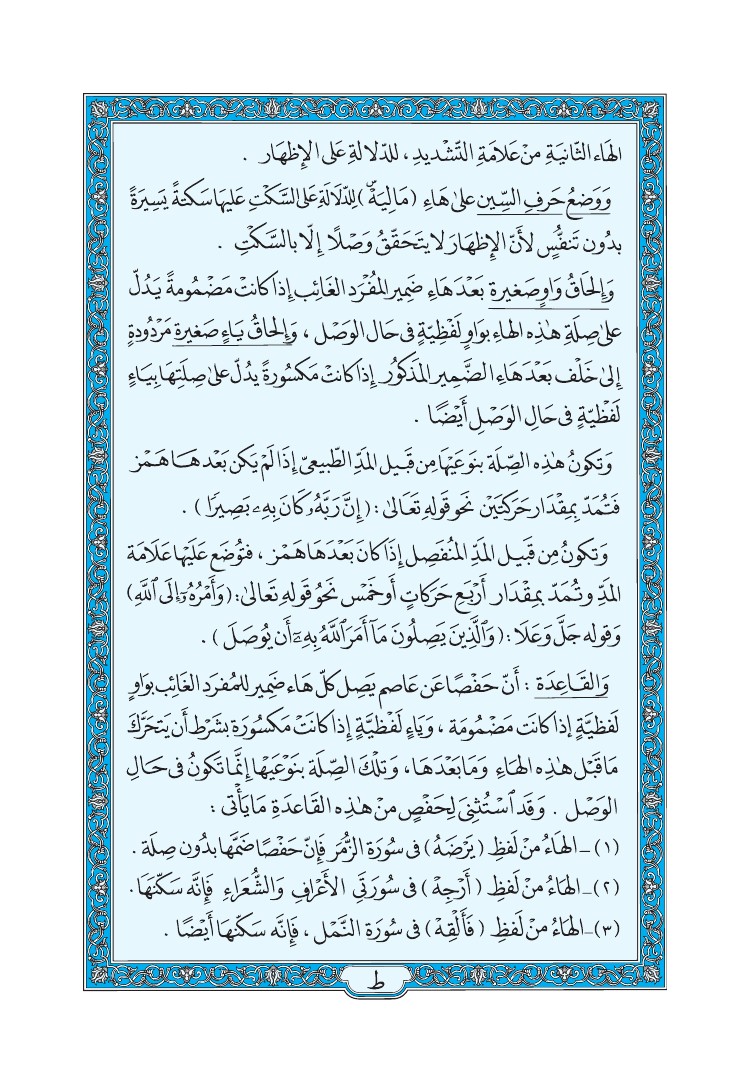 الهَاء الثَّانيَةِ مِنْ عَلَامَةِ التَّشْدِيدِ ، للدِّلَالَةِ عَلى الإِظْهَار .
وَوَضعُ حَرفِ السِّين عَلىٰ هَاءِ ( مَالِيَهْۜ ) لِلدِّلَالَةِ عَلى السَّكْتِ عَليهَا سَكتَةً يَسِيرَةً
بدُون تَنفُّسٍ لأَنَّ الإِظهَارَ لا يتَحَقّقُ وَصْلًا إِلّا بالسَّكْتِ .
وَإِلحَاقُ وَاوٍ صَغِيرة بَعْدَ هَاءِ ضَمِير المُفْرَد الغَائب إِذَا كانَتْ مَضْمُومةً يَدُلّ
علىٰ صِلَةِ هٰذِهِ الهاء بوَاوٍ لَفْظِيّةٍ فى حَال الوَصْل ، وَإِلحاقُ يَاءٍ صَغِيرة مَرْدُودةٍ
إلىٰ خَلْف بَعْدَ هَاءِ الضَّمير المَذكُور إِذَا كانَتْ مَكسُورَةً يَدُلّ علىٰ صِلَتهَا بيَاءٍ
لَفْظِيّةٍ فى حَالِ الوَصْلِ أَيْضًا .
وَتَكونُ هٰذِهِ الصِّلَة بنَوعَيْهَا مِن قَبِيل المَدِّ الطَّبيعىّ إِذَا لَمْ يَكُن بَعْدهَا هَمْز
فَتُمَدّ بِمِقْدَار حَرَكتَيْن نَحو قَولهِ تَعَالىٰ : ( إِنَّ رَبَّهُۥ كَانَ بِهِۦ بَصِيرًا ) .
وَتَكونُ مِن قَبيل المَدِّ المُنفَصِل إِذَا كانَ بَعْدَهَا هَمْز ، فتُوضَع عَلَيْها عَلَامَة
المَدِّ وتُمَدّ بمِقْدَار أَرْبَعِ حَرَكاتٍ أَو خَمْس نَحْوُ قَولهِ تَعَالىٰ: (وَأَمْرُهُۥٓ إِلَى ٱللَّهِ)
وَقولهِ جَلَّ وَعَلَا : ( وَٱلَّذِينَ يَصِلُونَ مَآ أَمَرَ ٱللَّهُ بِهِۦٓ أَن يُوصَلَ ) .
وَالقَاعِدَة : أَنّ حَفصًا عَن عَاصِم يَصِل كلّ هَاء ضَمِير للمُفرَد الغَائب بوَاوٍ
لَفظِيّةٍ إِذَا كانَت مَضْمُومَة ، وَيَاءٍ لَفْظِيَّةٍ إِذَا كانَتْ مَكسُورَة بشَرْط أَن يَتَحَرَّكَ
مَا قَبْل هٰذِهِ الهَاءِ وَمَا بَعدَهَا ، وَتلكَ الصِّلَة بنَوْعَيْها إِنَّمَا تَكُونُ فى حَالِ
الوَصْل . وَقَد ٱسْتُثنِىَ لِحَفْصٍ مِنْ هٰذِهِ القَاعدَةِ مَا يَأْتى :
(١) ـ الهَاءُ مِنْ لَفظِ ( يَرْضَهُ ) فى سُورَة الزُّمَر فَإِنّ حَفْصًا ضَمَّها بدُون صِلَة .
(٢) ـ الهَاءُ مِنْ لَفظِ ( أَرْجِهْ ) فى سُورَتَىِ الأَعْرَافِ وَالشُّعَراءِ فَإِنَّه سَكّنَهَا .
(٣) ـ الهَاءُ مِنْ لَفظِ ( فَأَلْقِهْ ) فى سُورَة النَّمْل ، فَإِنَّه سَكَنهَا أَيْضًا .
ط